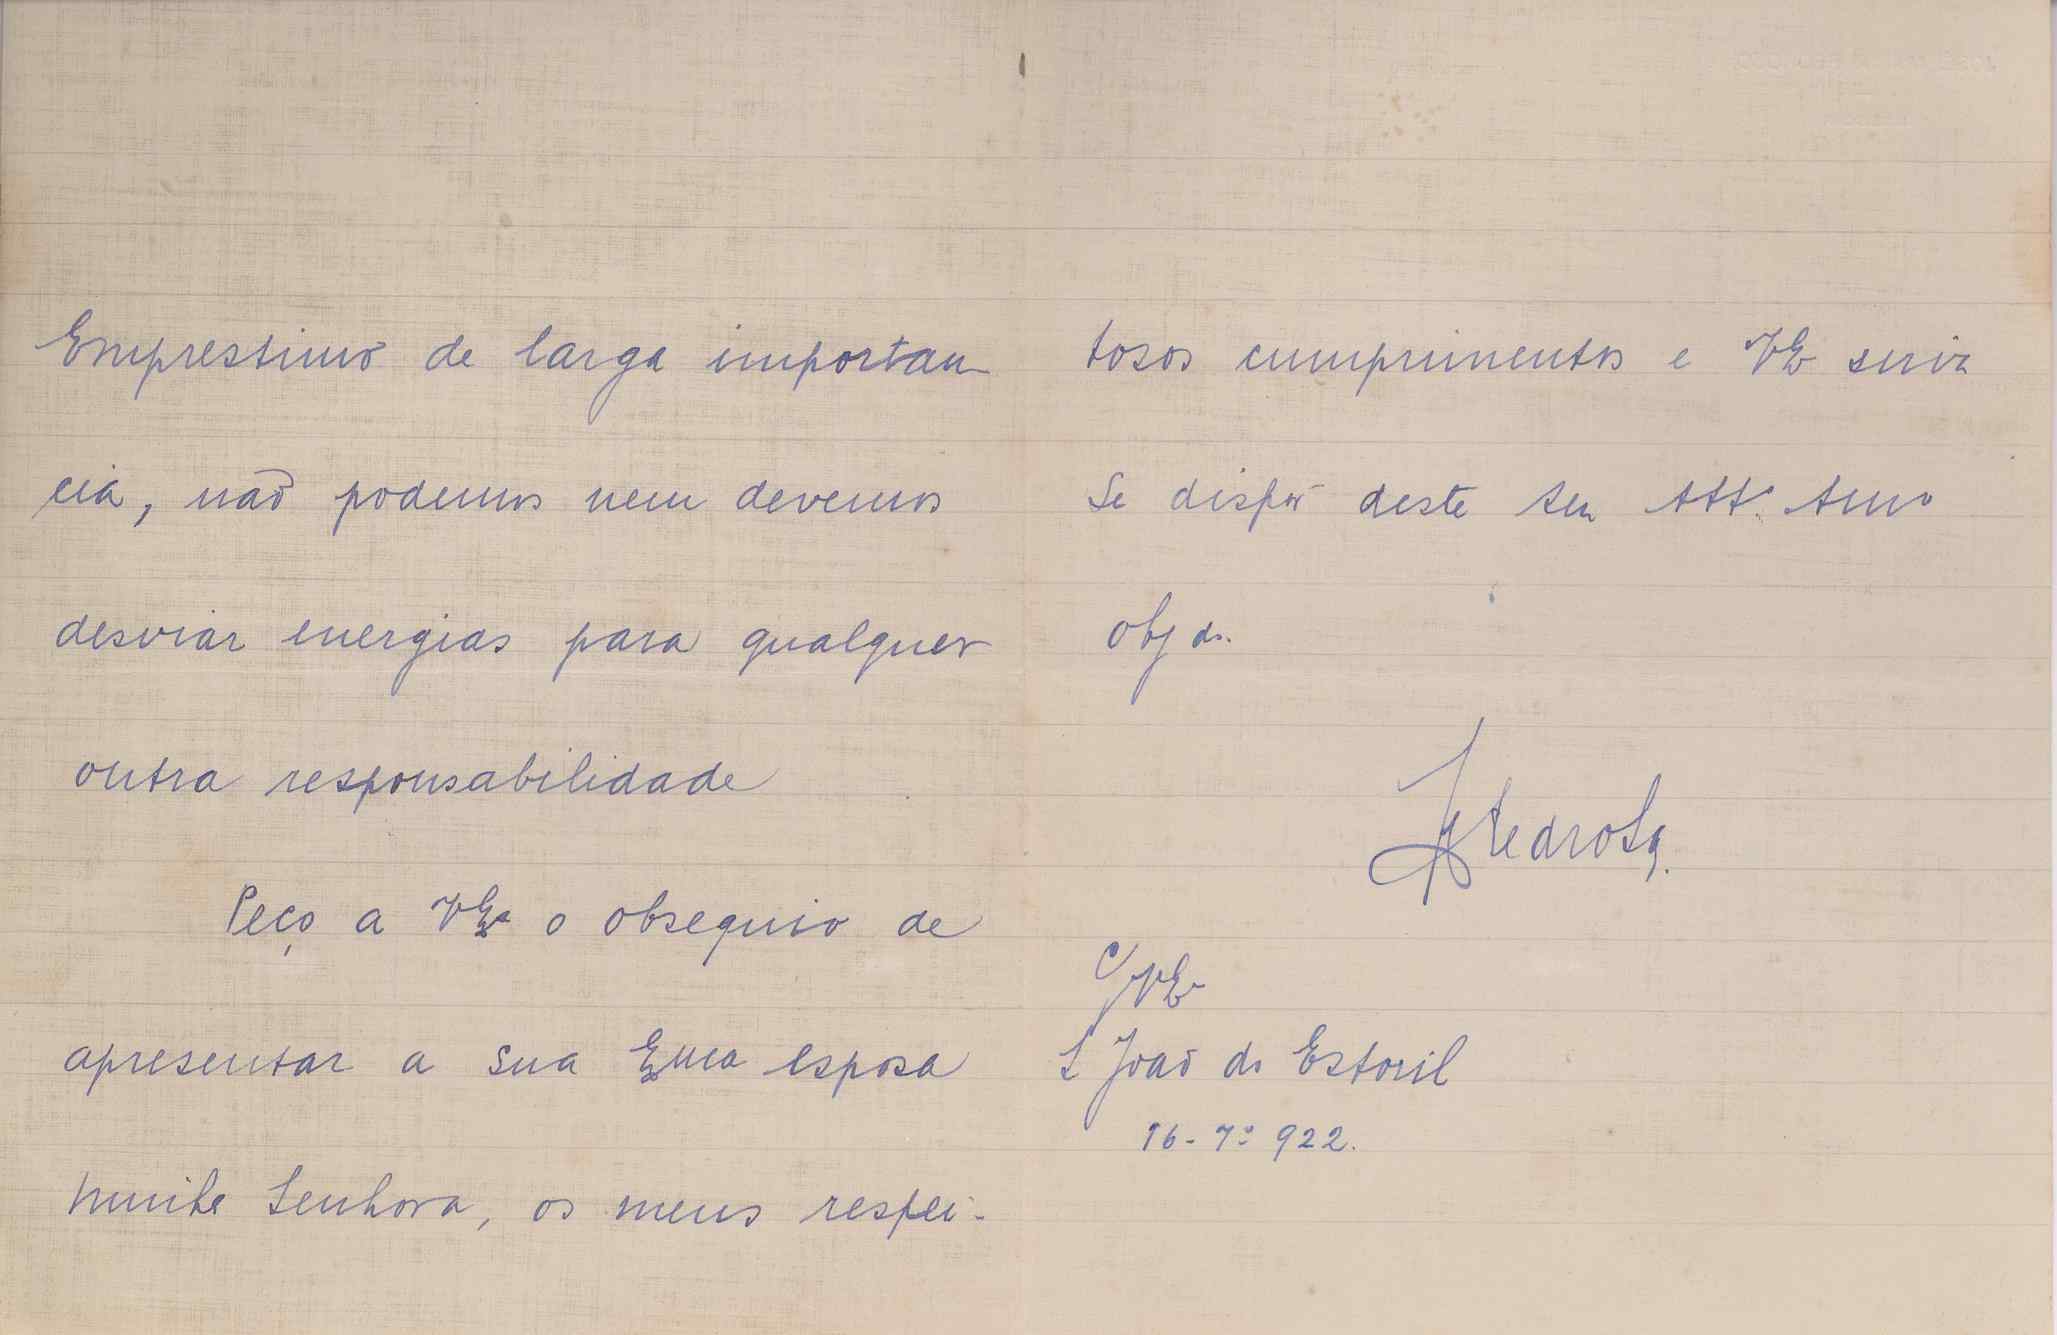 Emprestimo de larga importan
cia, não podemos nem devemos
desviar energias para qualquer
outra responsabilidade
Peço a VExa o obsequio de
apresentar a sua Exma esposa
minha Senhora, os meus respei-
tosos cumprimentos e VEx sirva
Se dispôr deste seu Att. Amo
obgdo.
Pedrosa.
C/VEx
S João do Estoril
16-7º 922.